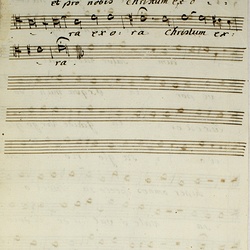 et pro nobis Christum exo
ra exo: ra Christum ex:
ra.